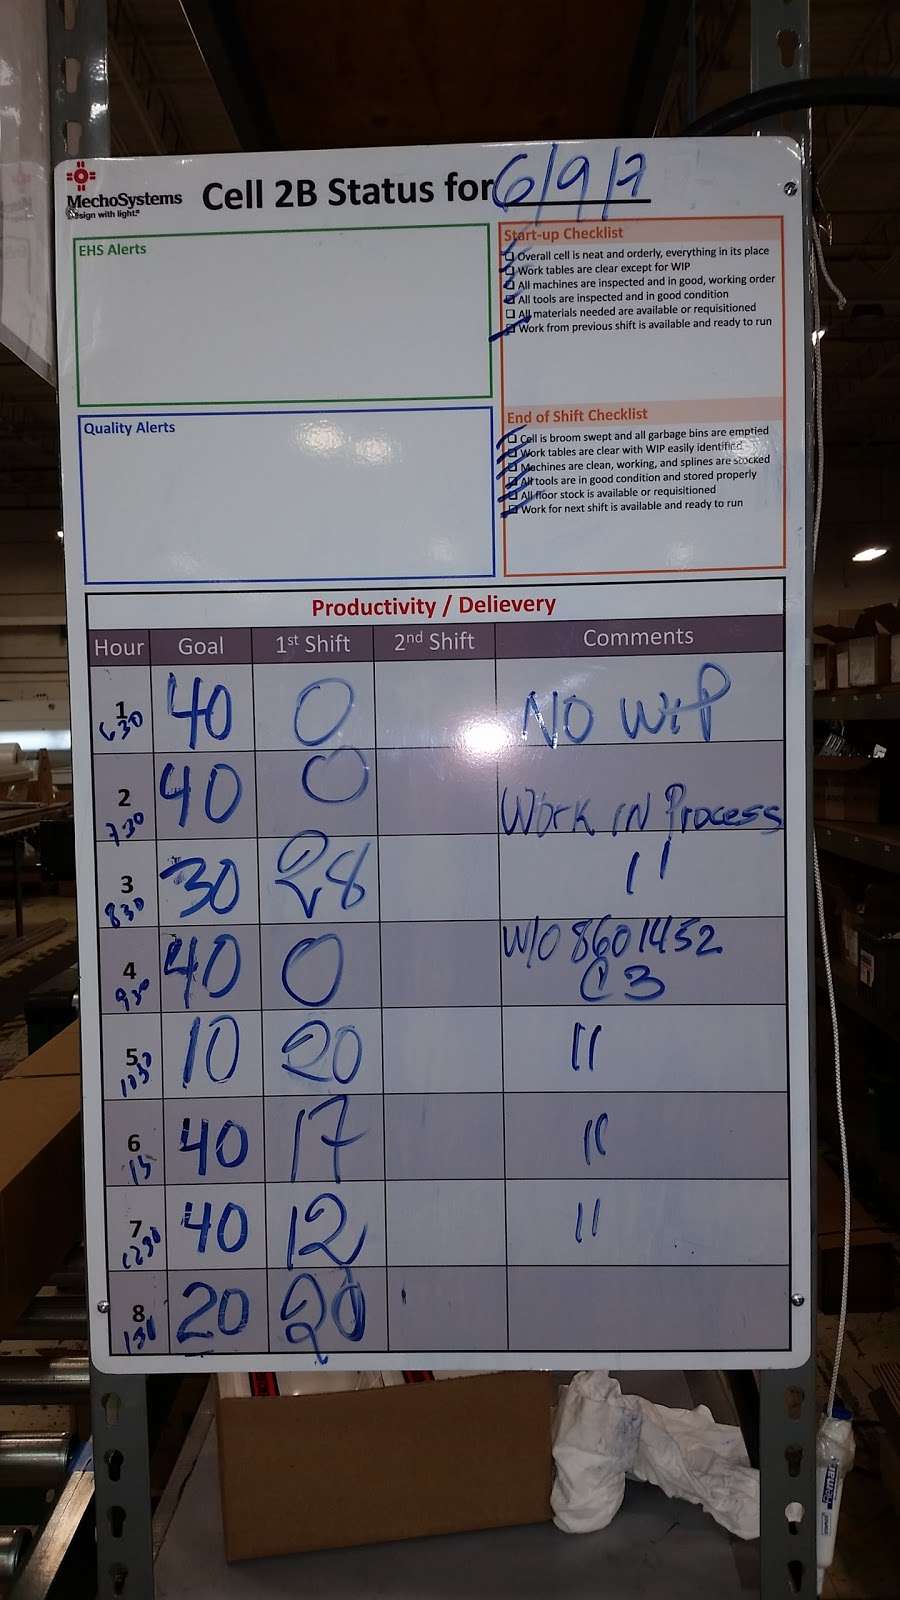 MechoSystems
Design with light.®
Cell 2B Status for 6/9/7
EHS Alerts
Start-up Checklist
Overall cell is neat and orderly, everything in its place
Work tables are clear except for WIP
All machines are inspected and in good, working order
All tools are inspected and in good condition
All materials needed are available or requisitioned
Work from previous shift is available and ready to run
Quality Alerts
End of Shift Checklist
Cell is broom swept and all garbage bins are emptied
Work tables are clear with WIP easily identified
Machines are clean, working, and splines are stocked
All tools are in good condition and stored properly
All floor stock is available or requisitioned
Work for next shift is available and ready to run
Productivity / Delievery
Hour Goal 1st Shift 2nd Shift Comments
1 40 0 NO WIP
630
2 40 0 Work IN Process
730
3 30 28 11
830
4 40 0 W/O 8601452
930 @ 3
5 10 20 11
1030
6 40 17 11
7 40 12 11
1230
8 20 20
130